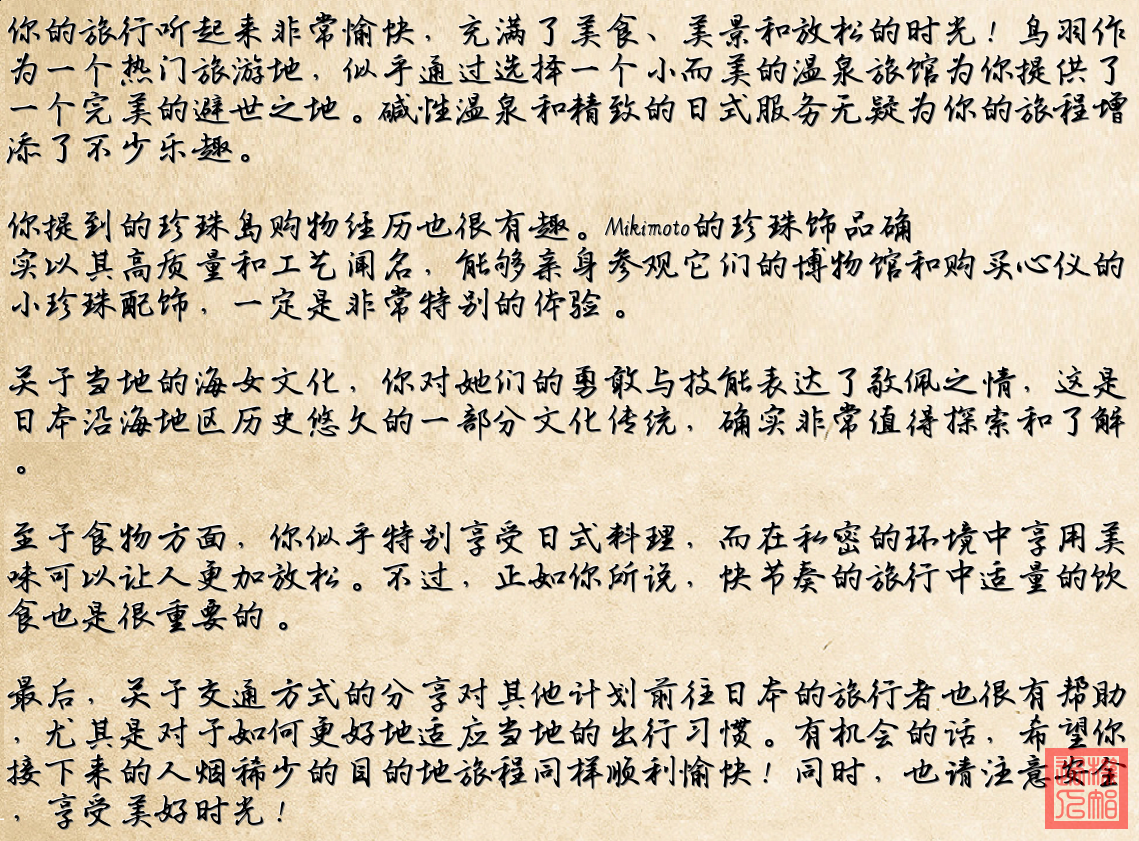 你的旅行听起来非常愉快，充满了美食、美景和放松的时光！鸟羽作
为一个热门旅游地，似乎通过选择一个小而美的温泉旅馆为你提供了
一个完美的避世之地。碱性温泉和精致的日式服务无疑为你的旅程增
添了不少乐趣。
你提到的珍珠岛购物经历也很有趣。Mikimoto的珍珠饰品确
实以其高质量和工艺闻名，能够亲身参观它们的博物馆和购买心仪的
小珍珠配饰，一定是非常特别的体验。
关于当地的海女文化，你对她们的勇敢与技能表达了敬佩之情，这是
日本沿海地区历史悠久的一部分文化传统，确实非常值得探索和了解
。
至于食物方面，你似乎特别享受日式料理，而在私密的环境中享用美
味可以让人更加放松。不过，正如你所说，快节奏的旅行中适量的饮
食也是很重要的。
最后，关于交通方式的分享对其他计划前往日本的旅行者也很有帮助
，尤其是对于如何更好地适应当地的出行习惯。有机会的话，希望你
接下来的人烟稀少的目的地旅程同样顺利愉快！同时，也请注意安全
，享受美好时光！